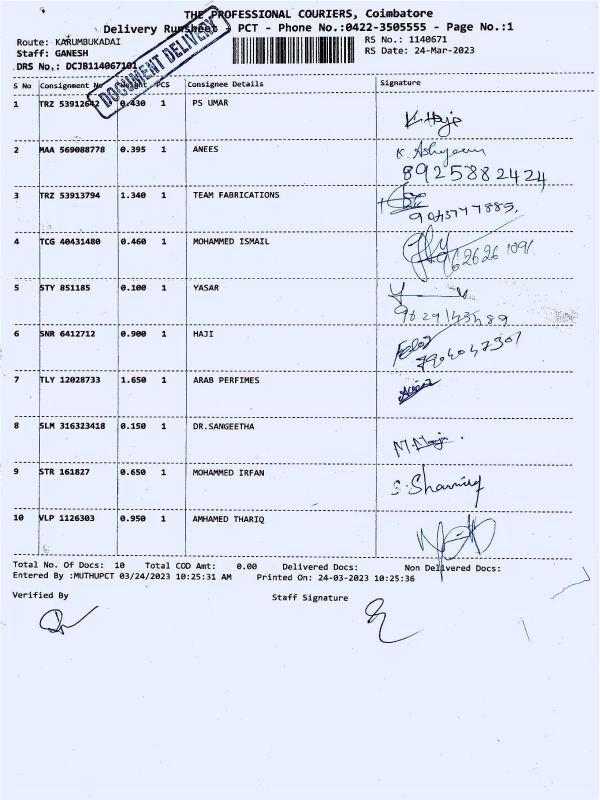 THE PROFESSIONAL COURIERS, Coimbatore
Delivery Runsheet - PCT - Phone No.:0422-3505555 - Page No.:1
Route: KARUMBUKADAI
RS No.: 1140671
Staff: GANESH
RS Date: 24-Mar-2023
DRS No.: DCJB114067101
DOCUMENT DELIVERY
S No Consignment No Weight PCS Consignee Details Signature
1 TRZ 53912642 0.430 1 PS UMAR
2 MAA 569088778 0.395 1 ANEES
8925882424
3 TRZ 53913794 1.340 1 TEAM FABRICATIONS
4 TCG 40431480 0.460 1 MOHAMMED ISMAIL
5 STY 851185 0.100 1 YASAR
6 SNR 6412712 0.900 1 HAJI
7 TLY 12028733 1.650 1 ARAB PERFIMES
8 SLM 316323418 0.150 1 DR.SANGEETHA
9 STR 161827 0.650 1 MOHAMMED IRFAN
10 VLP 1126303 0.950 1 AMHAMED THARIQ
Total No. Of Docs: 10 Total COD Amt: 0.00 Delivered Docs: Non Delivered Docs:
Entered By :MUTHUPCT 03/24/2023 10:25:31 AM Printed On: 24-03-2023 10:25:36
Verified By
Staff Signature